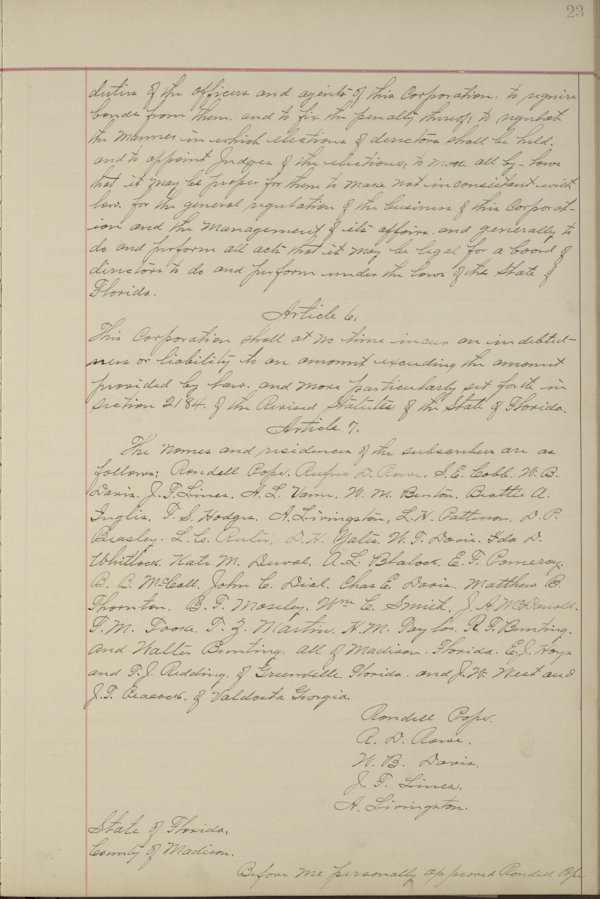 23
duties of the officers and agents of this Corporation. to require
bonds from them. and to fix the penalty thereof; to regulate
the manner in which elections of directors shall be held.
and to appoint Judges of the elections; to make all by-laws
that it may be proper for them to make not inconsistent with
law. for the general regulation of the business of this Corporat-
ion and the management of its affairs. and generally to
do and perform all acts that it may be legal for a board of
directors to do and perform under the laws of the State of
Florida.
Article 6.
This Corporation shall at no time incur an indebted-
ness or liability to an amount exceeding the amount
provided by law. and more particularly set forth in
section 2184. of the Revised Statutes of the State of Florida.
Article 7.
The names and residences of the subscribers are as
follows; Randell Pope. Rufus D. Rowe. S. E. Cobb. W. B.
Davis. J. F. Lines. A. L. Vann. W. M. Benton. Beattie A.
Inglis. T. S. Hodges. A. Livingston. L. H. Patterson. D. P.
Beasley. L. C. D. H. Yates. W. T. Davis. Ida D.
Whitlock. Kate M. Duval. A. L. Blalock. E. F. Pomeroy.
B. B. McCall. John C. Dial. Chas E. Davis. Matthew B.
Thornton. B. F. Moseley. Wm C. Smith. J. A. McDonald.
F. M. T. Z. Martin. H. M. Taylor. R. F. Bunting.
and Walter Bunting. all of Madison. Florida. E. J. Hays
and F. J. Redding. of Greenville. Florida. and J. W. West and
J. T. Peacock. of Valdosta Georgia.
Randell Pope.
R. D. Rowe.
W. B. Davis.
J. F. Lines.
A. Livingston.
State of Florida.
County of Madison.
Before me personally appeared Randell Pope